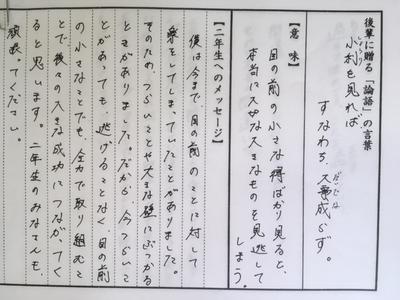 後輩に贈る「論語」の言葉
小利を見れば
しょうり
すなわち、大事成らず。
だいじな
【意味】
目の前の小さな得ばかり見ると、
本当に大切な大きなものを見逃して
しまう。
【二年生へのメッセージ】
僕は今まで、目の前のことに対して
楽をしてしまっていたことがありました。
そのため、つらいことや大きな壁にぶつかる
ときがありました。だから、今つらいこ
とがあっても、逃げることなく、目の前
の小さなことでも、全力で取り組むこ
とで後々の大きな成功につながってく
ると思います。二年生のみなさんも、
頑張ってください。